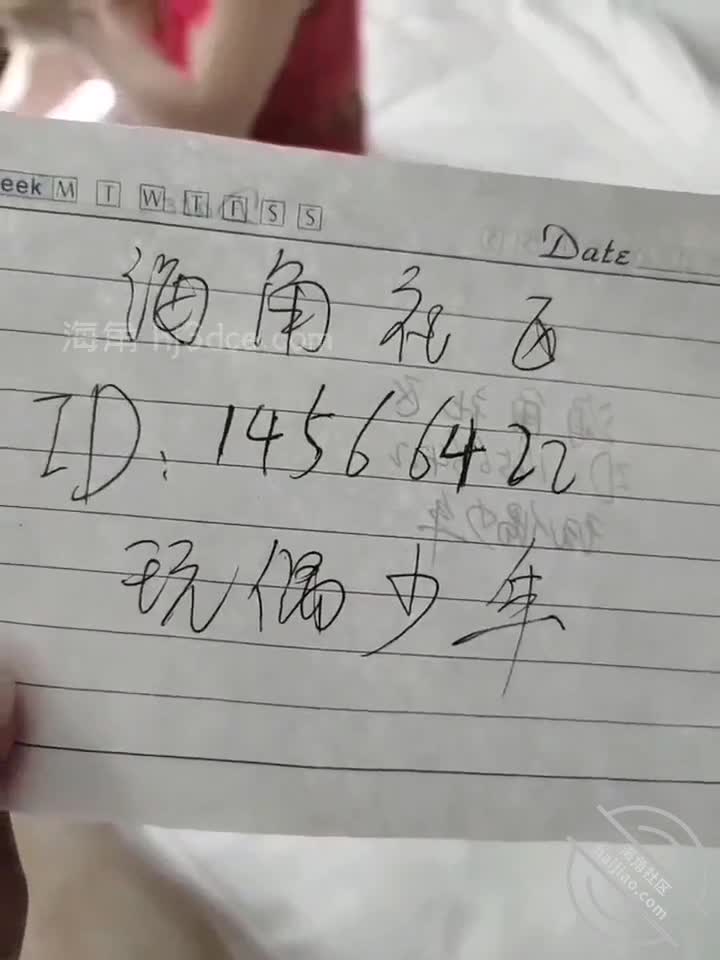 eek M T W T F S S
Date
海角社区
海角 hj3dce.com
ID: 14566422
玩偶少年
海角社区
haijiao.com